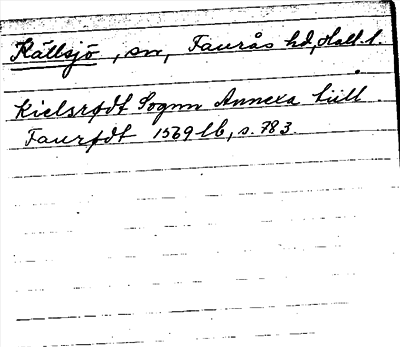 Källsjö, sn, Faurås hd, Hall. l.
Kielsrødt Sognn Annexa till
Faurødt 1569 lb, s. 783.